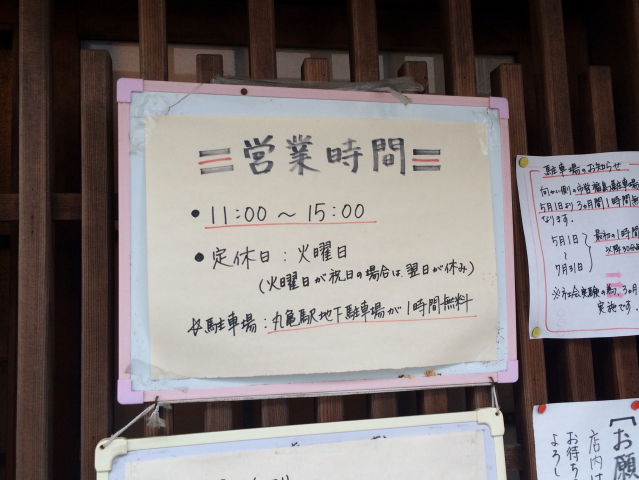 営業時間
• 11:00 ～ 15:00
• 定休日：火曜日
(火曜日が祝日の場合は翌日が休み)
※駐車場：丸亀駅地下駐車場が1時間無料
駐車場のお知らせ
向かい側の市営福島駐車場
5月1日より3ヵ月間1時間無
なります。
5月1日
～
7月31日
最初の1時間
以降30分
※社会実験の為、3ヵ月
実施です。
【お願
店内は
お待ち
よろし